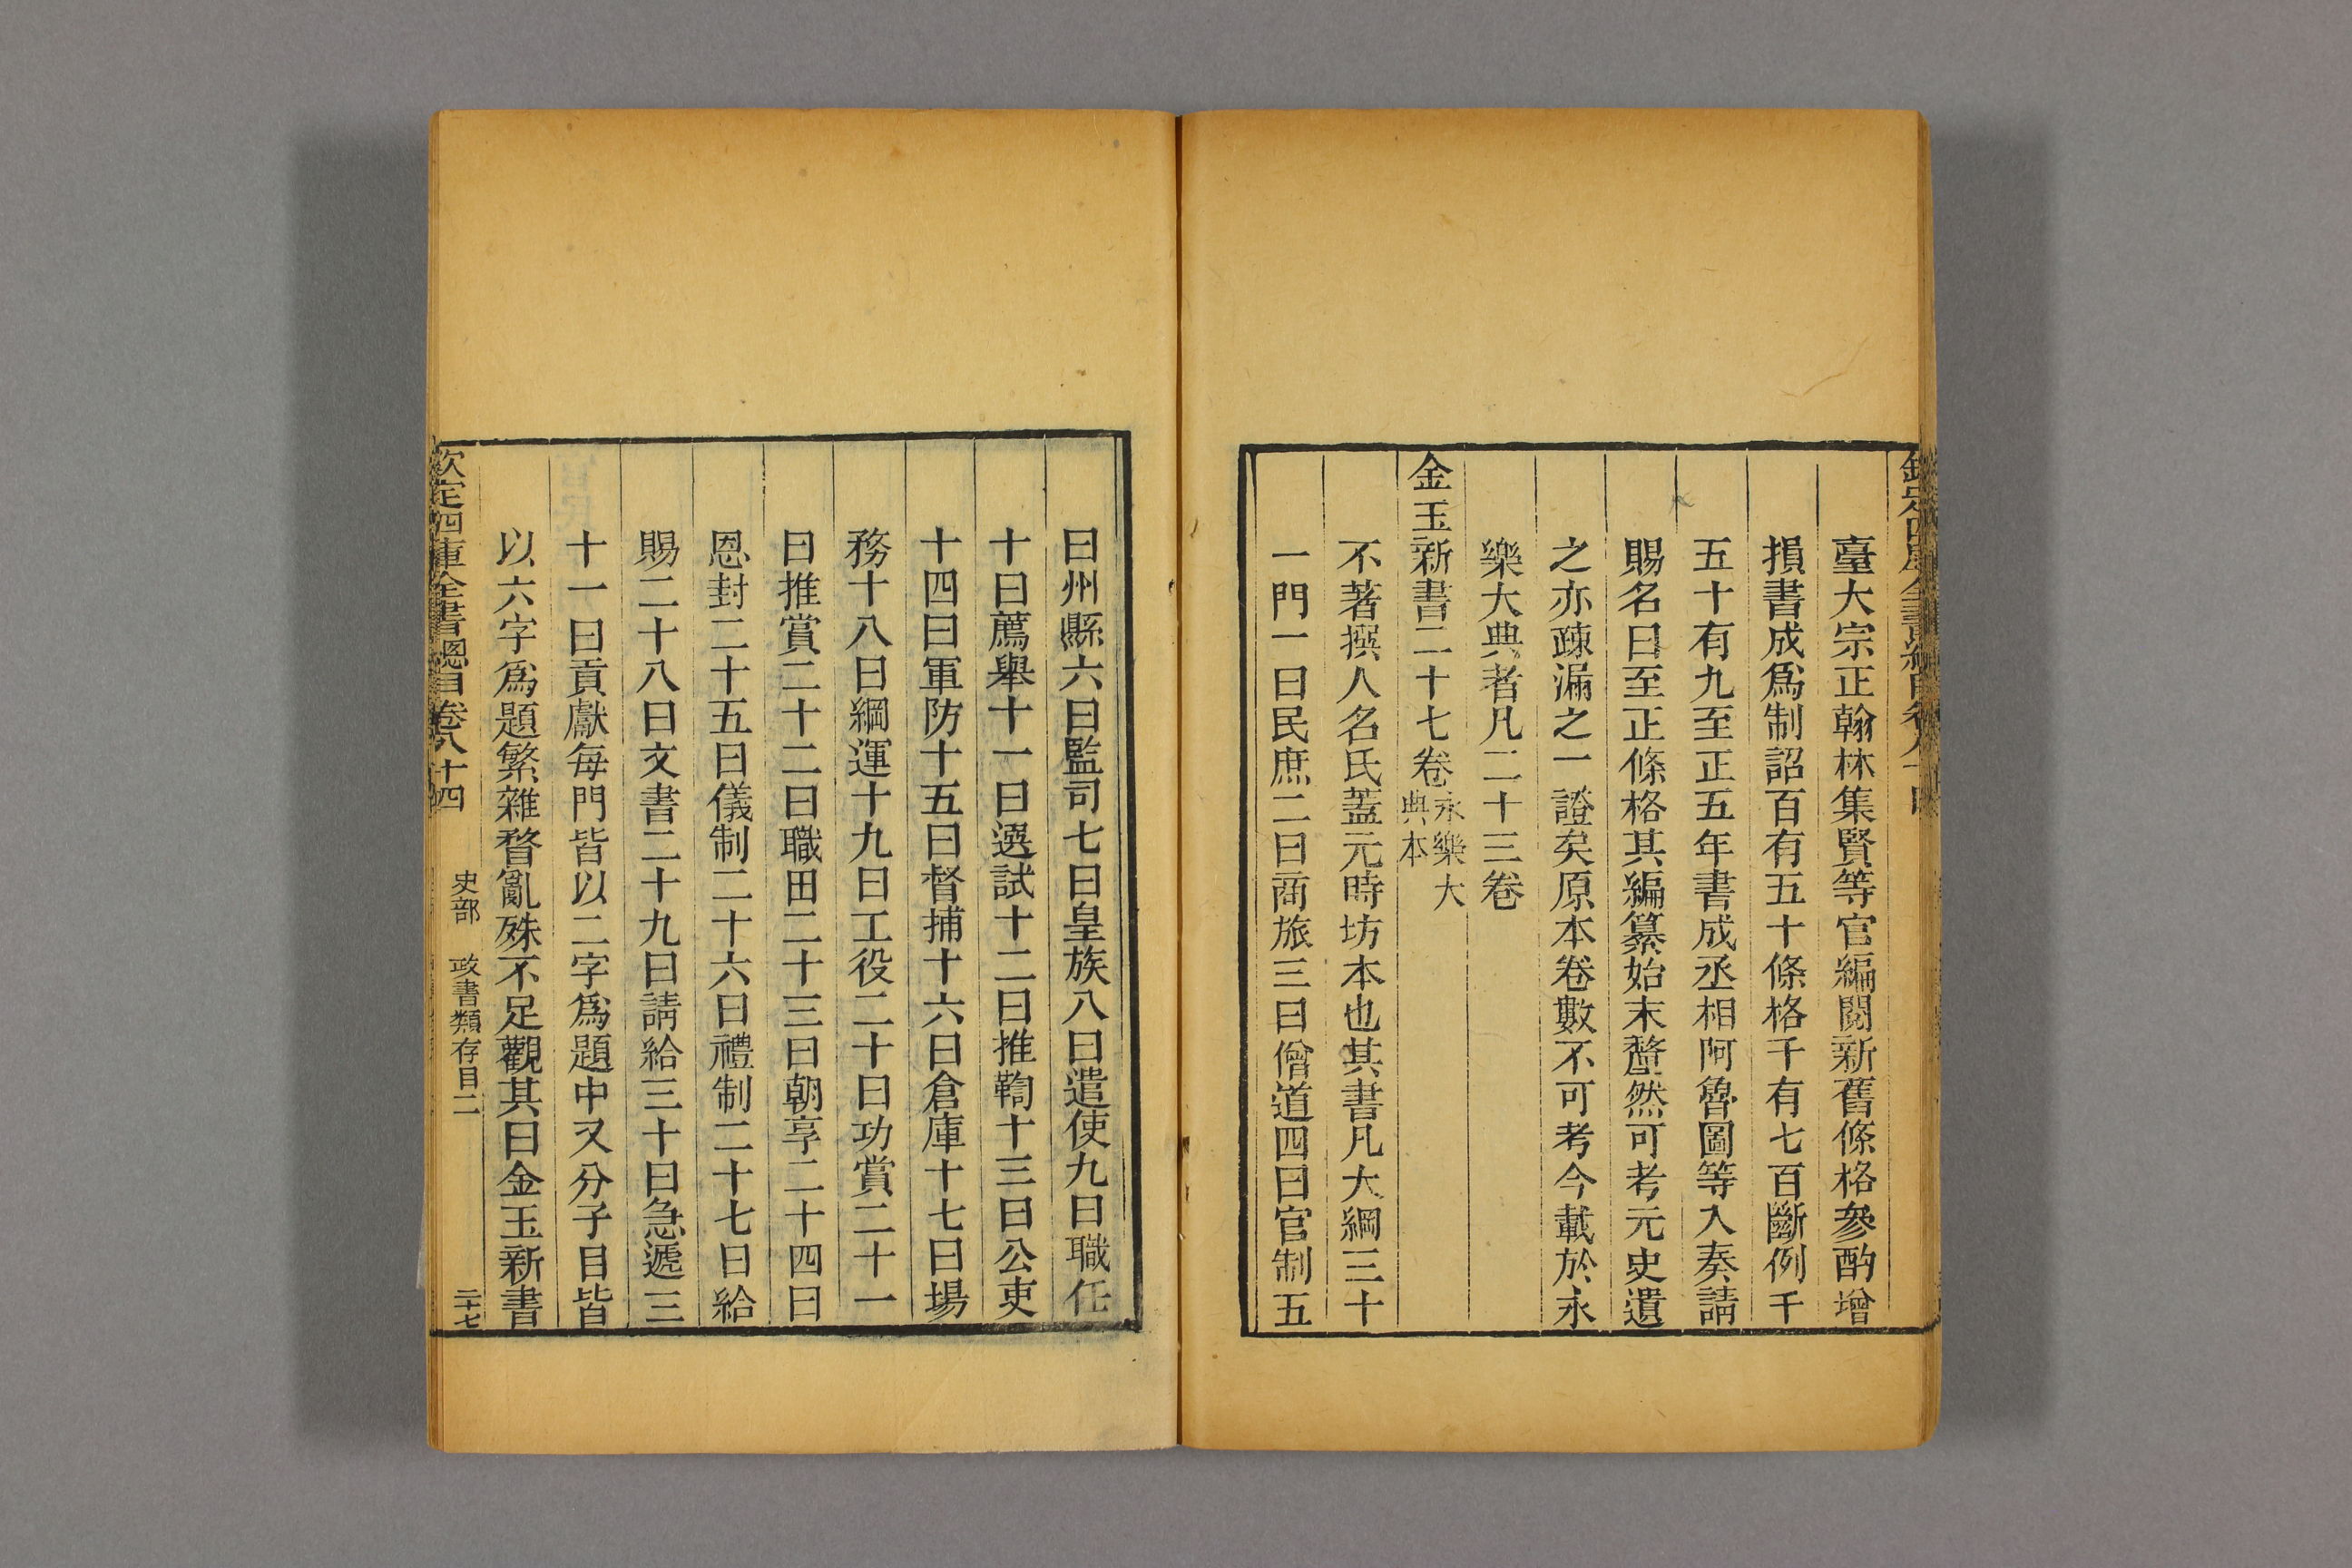 臺大宗正翰林集賢等官編閱新舊條格參酌增
損書成爲制詔百有五十條格千有七百斷例千
五十有九至正五年書成丞相阿魯圖等入奏請
賜名曰至正條格其編纂始末釐然可考元史遺
之亦疎漏之一證矣原本卷數不可考今載於永
樂大典者凡二十三卷
金玉新書二十七卷永樂大典本
不著撰人名氏蓋元時坊本也其書凡大綱三十
一門一曰民庶二曰商旅三曰僧道四曰官制五
曰州縣六曰監司七曰皇族八曰遣使九曰職任
十曰薦舉十一曰選試十二曰推鞫十三曰公吏
十四曰軍防十五曰督捕十六曰倉庫十七曰場
務十八曰綱運十九曰工役二十曰功賞二十一
曰推賞二十二曰職田二十三曰朝享二十四曰
恩封二十五曰儀制二十六曰禮制二十七曰給
賜二十八曰文書二十九曰請給三十曰急遞三
十一曰貢獻每門皆以二字爲題中又分子目皆
以六字爲題繁雜瞀亂殊不足觀其曰金玉新書
欽定四庫全書總目卷八十四 史部 政書類存目二 二十七